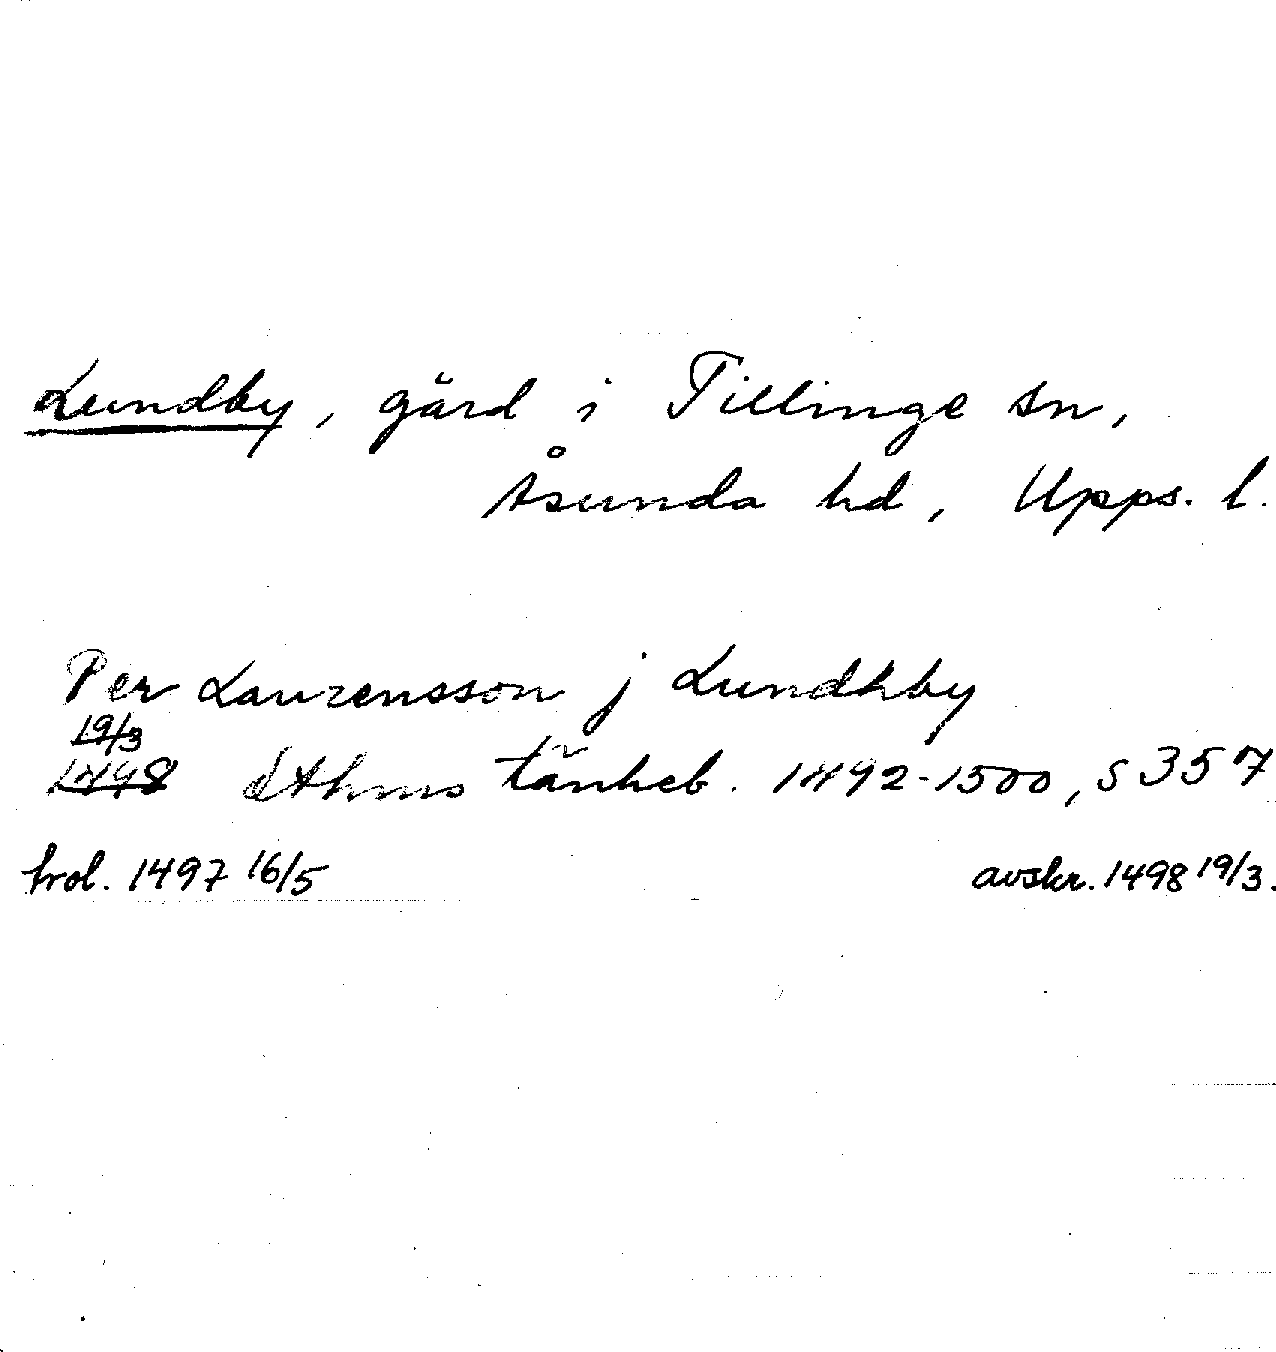 Lundby, gård i Tillinge sn,
Åsunda hd, Upps. l.
Per Laurensson j Lundhby
19/3
1498 Sthms tänkeb. 1492-1500, s 357
trol. 1497 16/5 avskr. 1498 19/3.